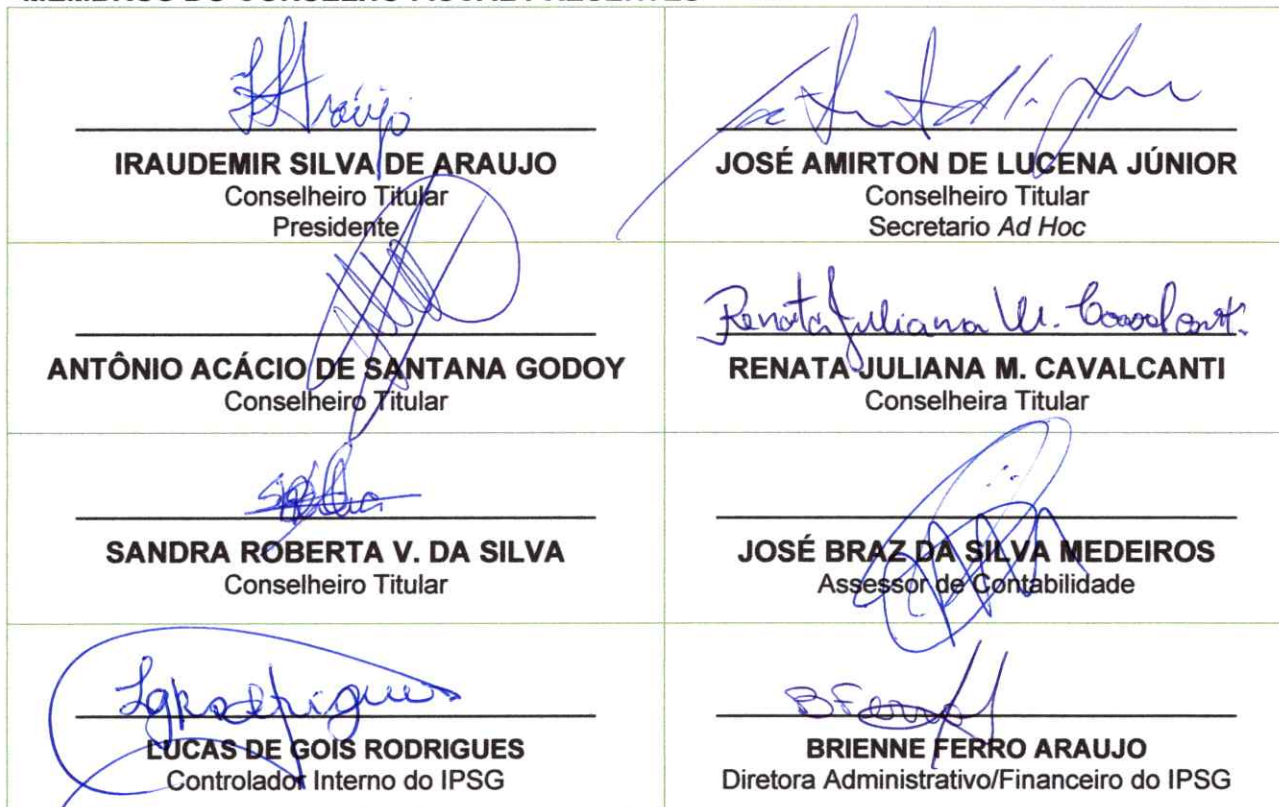 MEMBROS DO CONSELHO FISCAL PRESENTES
Araújo
IRAUDEMIR SILVA DE ARAUJO
Conselheiro Titular
Presidente
JOSÉ AMIRTON DE LUCENA JÚNIOR
Conselheiro Titular
Secretario Ad Hoc
ANTÔNIO ACÁCIO DE SANTANA GODOY
Conselheiro Titular
Renata Juliana M. Cavalcanti
RENATA JULIANA M. CAVALCANTI
Conselheira Titular
SANDRA ROBERTA V. DA SILVA
Conselheiro Titular
JOSÉ BRAZ DA SILVA MEDEIROS
Assessor de Contabilidade
LGRodrigues
LUCAS DE GOIS RODRIGUES
Controlador Interno do IPSG
BRIENNE FERRO ARAUJO
Diretora Administrativo/Financeiro do IPSG